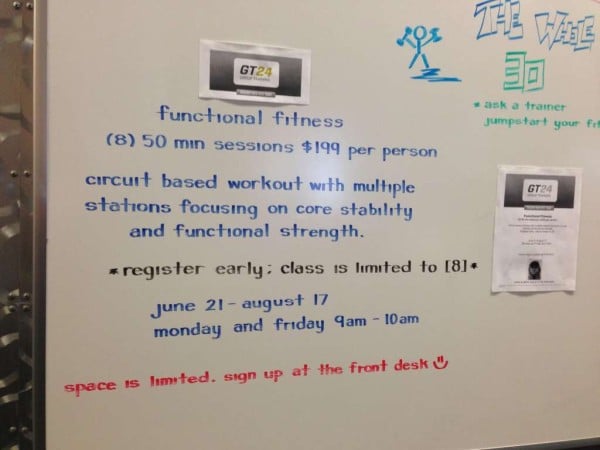 GT24
functional fitness
(8) 50 min sessions $199 per person
circuit based workout with multiple
stations focusing on core stability
and functional strength.
*register early; class is limited to [8]*
june 21 - august 17
monday and friday 9am - 10am
space is limited. sign up at the front desk
THE WHOLE
30
* ask a trainer
jumpstart your fit
GT24
Functional Fitness